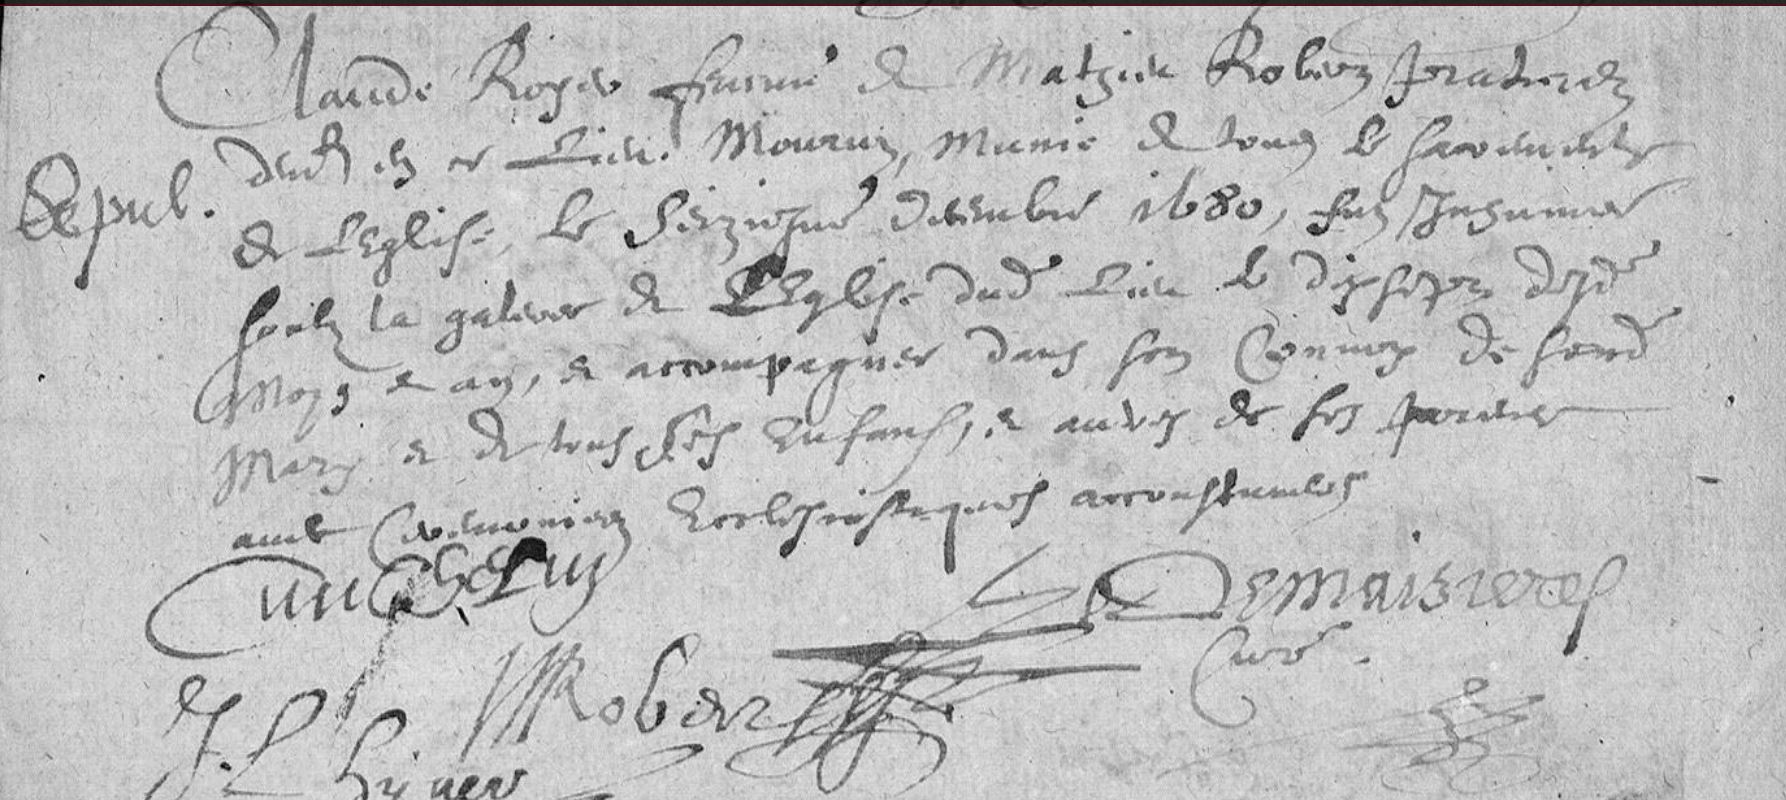 Claude Roger femme de Mathieu Robert praticien
Sepul.
demt en ce Lieu. Mourut, munie de tous les sacrements
de L'Eglise, le seiziesme decembre 1680, fut Inhumée
soubz la galerie de L'Eglise dud Lieu le dixsept desd
Moys et an, et accompagnée dans son Convoy de sond
Mary et de tous ses Enfans, et autres de ses parens
avec Ceremonies Ecclesiastiques accoustumées
Demaisieres
Curé.
Robert